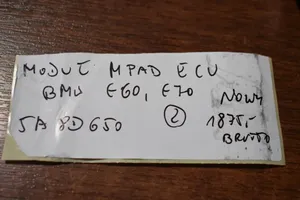 MODUŁ MPAD ECU
BMW E60, E70
NOWY
5A 8D650
2
1875,-
BRUTTO